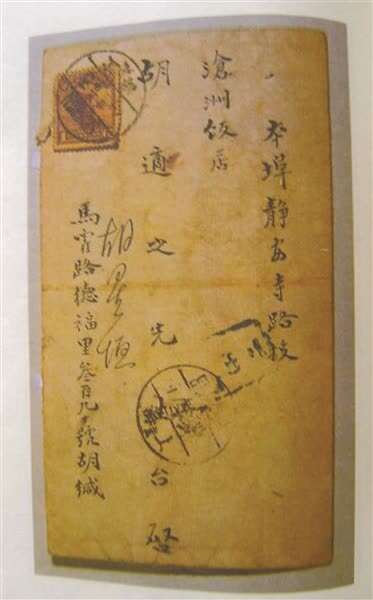 本埠靜安寺路投
滄洲飯店
胡適之先台啓
胡
馬霍路德福里叁百九十號胡緘